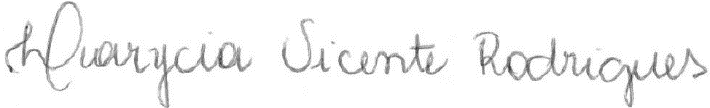 Marycia Vicente Rodrigues